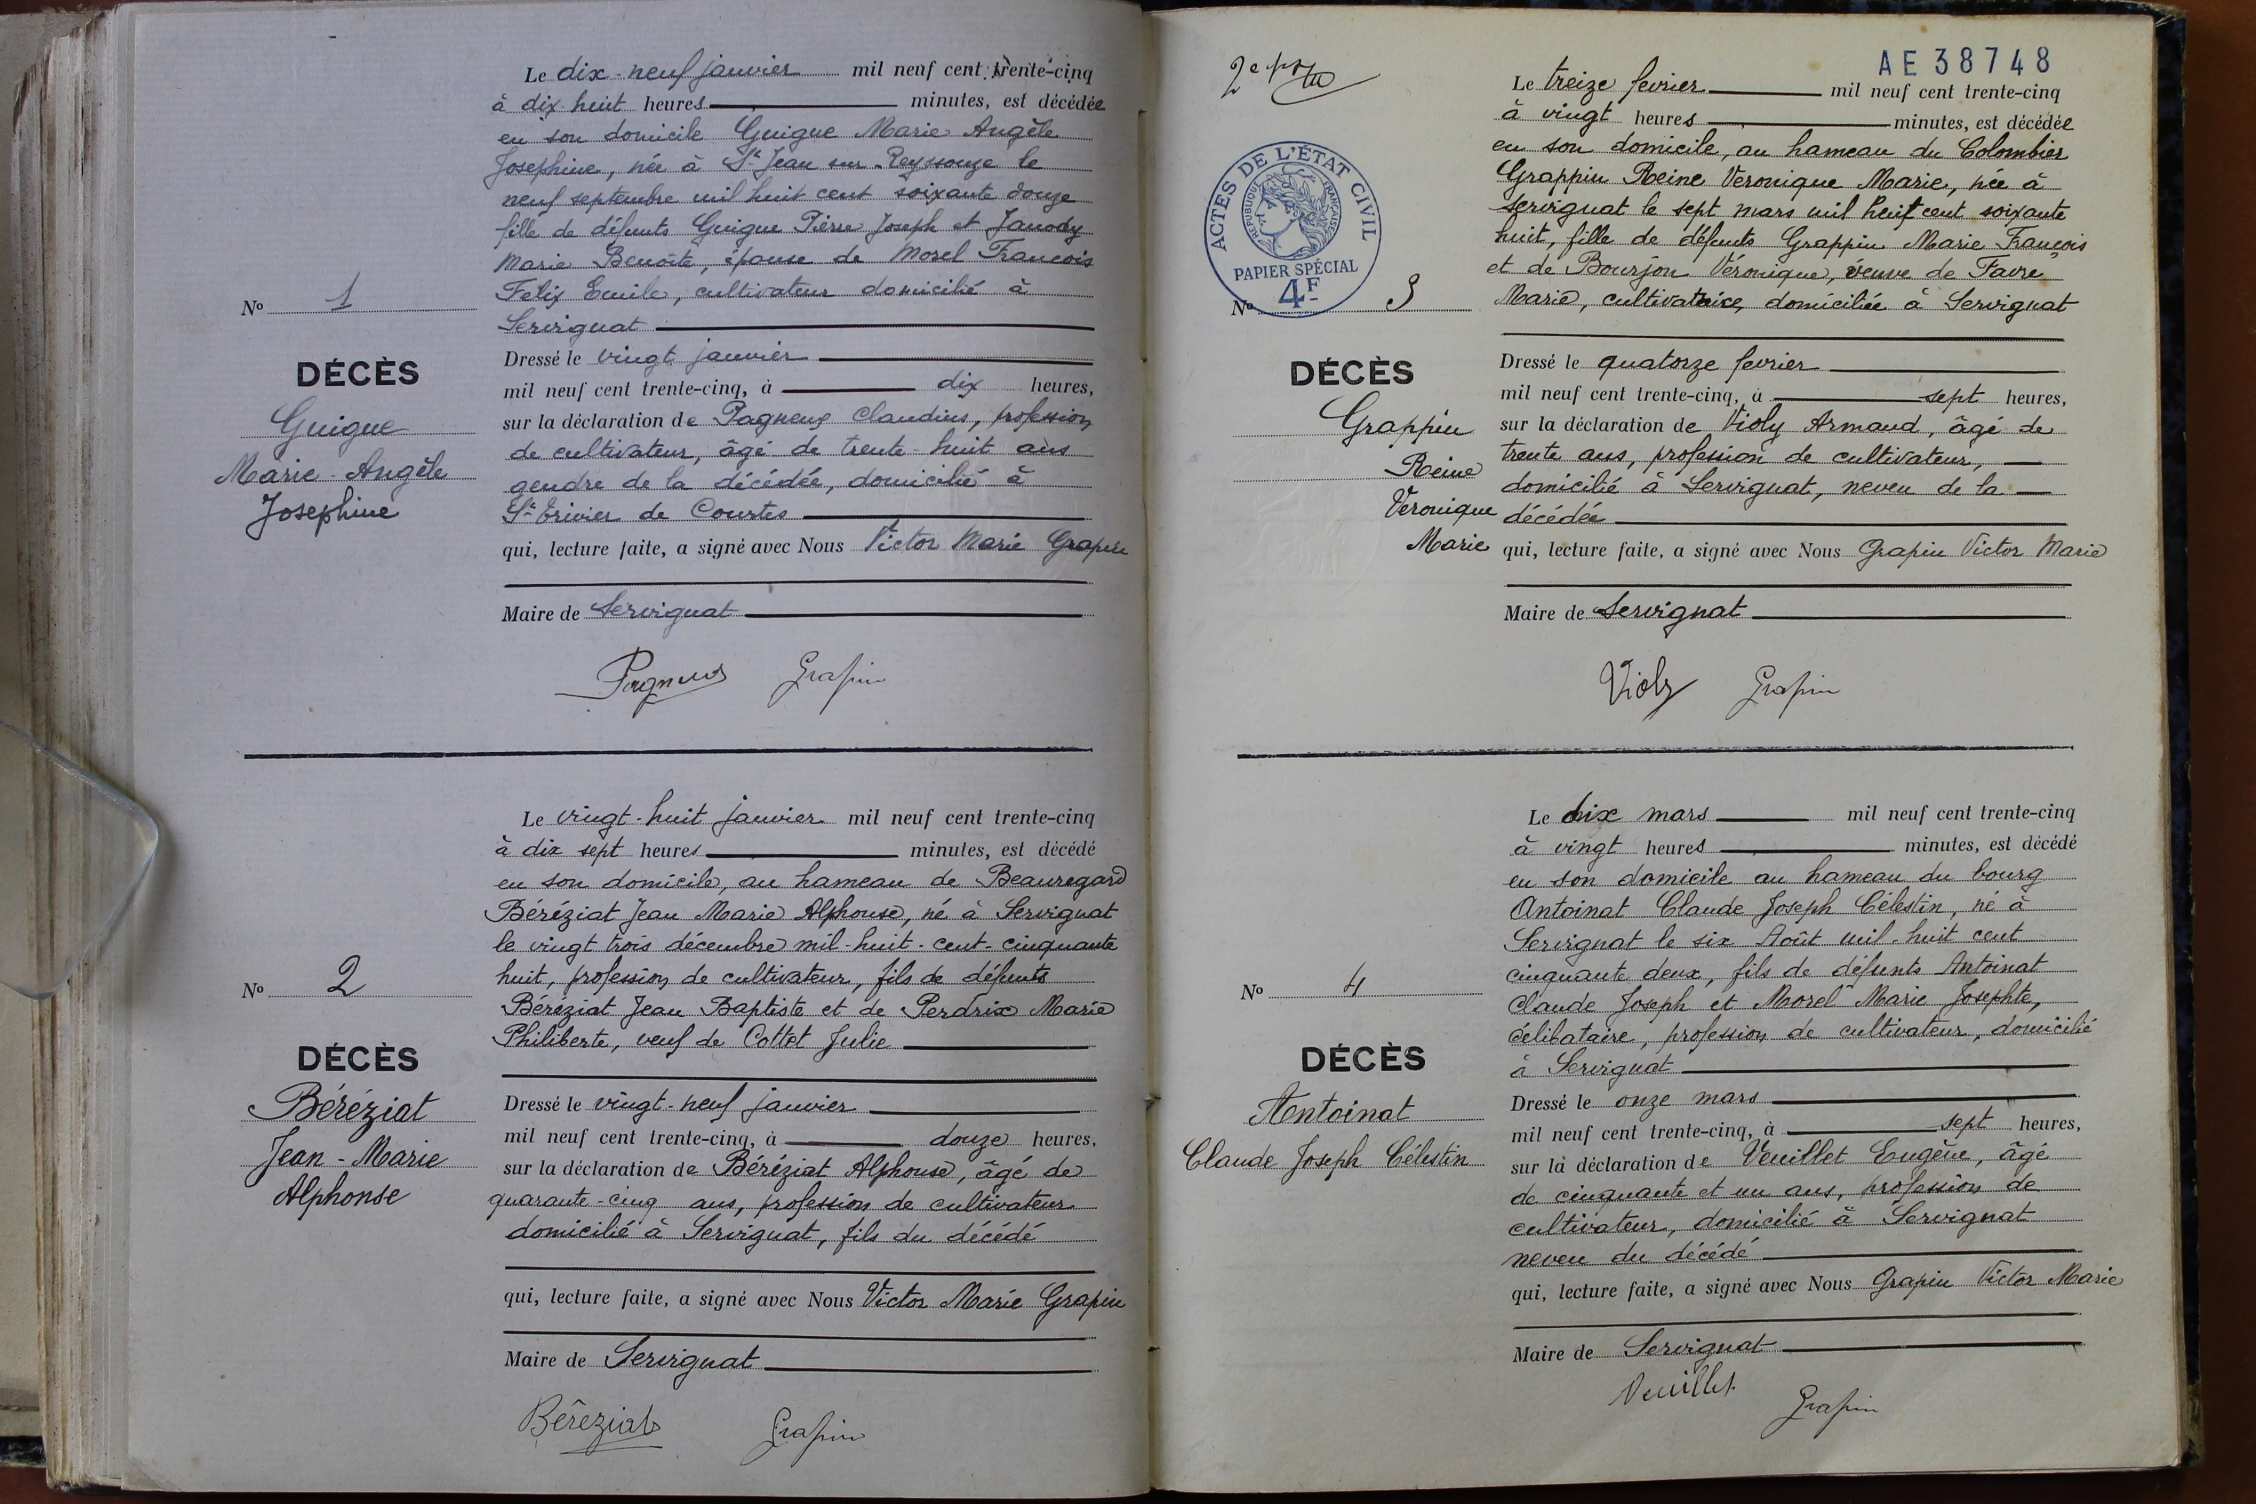 Le dix-neuf janvier mil neuf cent trente-cinq
à dix huit heures minutes, est décédée
en son domicile Guigue Marie Angèle
Josephine, née à St Jean sur Reyssouze le
neuf septembre mil huit cent soixante douze
fille de défunts Guigue Pierre Joseph et Janody
Marie Benoîte, épouse de Morel François
Félix Emile, cultivateur domicilié à
Servignat
No 1
DÉCÈS
Guigue
Marie-Angèle
Josephine
Dressé le vingt janvier
mil neuf cent trente-cinq, à dix heures,
sur la déclaration de Pagneux Claudius, profession
de cultivateur, âgé de trente-huit ans
gendre de la décédée, domicilié à
St Trivier de Courtes
qui, lecture faite, a signé avec Nous Victor Marie Grapin
Maire de Servignat
Pagneux Grapin
Le vingt-huit janvier mil neuf cent trente-cinq
à dix sept heures minutes, est décédé
en son domicile, au hameau de Beauregard
Béréziat Jean Marie Alphonse, né à Servignat
le vingt trois décembre mil-huit-cent-cinquante
huit, profession de cultivateur, fils de défunts
Béréziat Jean Baptiste et de Perdrix Marie
Philiberte, veuf de Cottet Julie
No 2
DÉCÈS
Béréziat
Jean-Marie
Alphonse
Dressé le vingt-neuf janvier
mil neuf cent trente-cinq, à douze heures,
sur la déclaration de Béréziat Alphonse, âgé de
quarante-cinq ans, profession de cultivateur
domicilié à Servignat, fils du décédé
qui, lecture faite, a signé avec Nous Victor Marie Grapin
Maire de Servignat
Béréziat Grapin
2e
AE 38748
ACTES DE L'ÉTAT CIVIL
RÉPUBLIQUE FRANÇAISE
PAPIER SPÉCIAL
4F
Le treize fevrier mil neuf cent trente-cinq
à vingt heures minutes, est décédée
en son domicile, au hameau du Colombier
Grappin Reine Veronique Marie, née à
Servignat le sept mars mil huit cent soixante
huit, fille de défunts Grappin Marie François
et de Bourjon Véronique, veuve de Favre
Marie, cultivatrice, domiciliée à Servignat
No 3
DÉCÈS
Grappin
Reine
Veronique
Marie
Dressé le quatorze fevrier
mil neuf cent trente-cinq, à sept heures,
sur la déclaration de Violy Armand, âgé de
trente ans, profession de cultivateur,
domicilié à Servignat, neveu de la
décédée
qui, lecture faite, a signé avec Nous Grapin Victor Marie
Maire de Servignat
Violy Grapin
Le dix mars mil neuf cent trente-cinq
à vingt heures minutes, est décédé
en son domicile au hameau du bourg
Antoinat Claude Joseph Célestin, né à
Servignat le six Août mil-huit cent
cinquante deux, fils de défunts Antoinat
Claude Joseph et Morel Marie Josephte,
célibataire, profession de cultivateur, domicilié
à Servignat
No 4
DÉCÈS
Antoinat
Claude Joseph Célestin
Dressé le onze mars
mil neuf cent trente-cinq, à sept heures,
sur la déclaration de Veuillet Eugène, âgé
de cinquante et un ans, profession de
cultivateur, domicilié à Servignat
neveu du décédé
qui, lecture faite, a signé avec Nous Grapin Victor Marie
Maire de Servignat
Veuillet Grapin